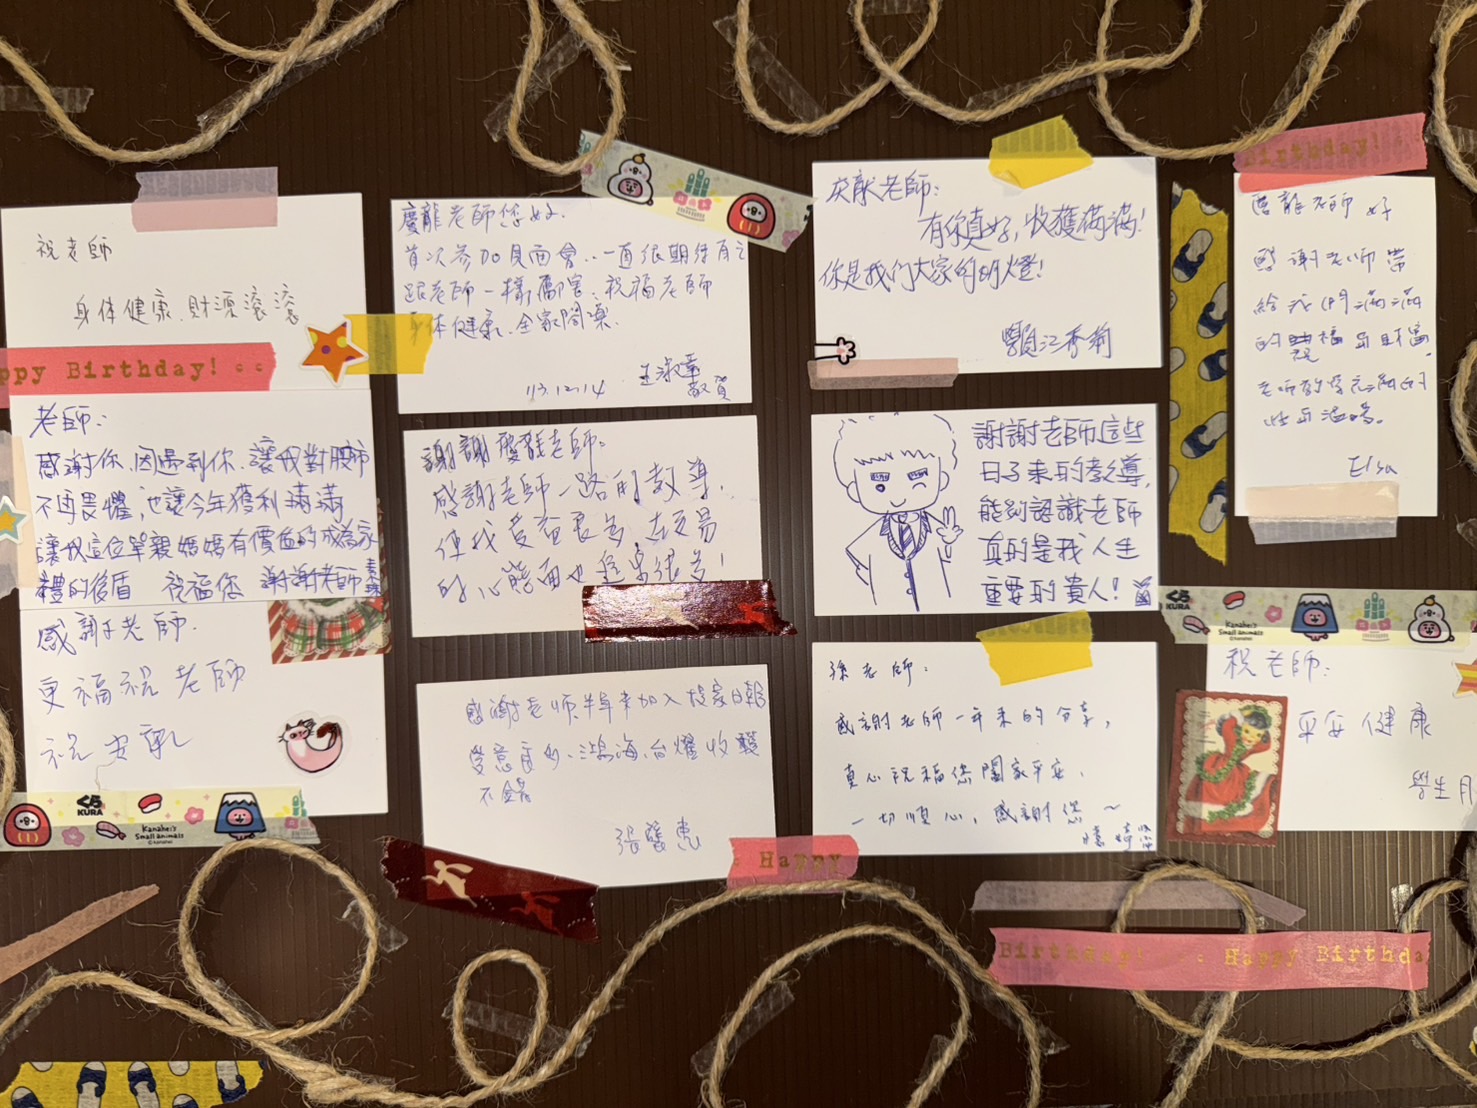 祝老師
身体健康、財源滾滾
ppy Birthday!
老師:
感謝你，因遇到你，讓我對股市
不再畏懼，也讓今年獲利滿滿
讓我這位單親媽媽有價值的成為家
禮的後盾 祝福您 謝謝老師
感謝老師.
更福祝老師
祝安
くら
KURA
Kanahei's
Small animals
慶龍老師您好.
首次參加見面會..一直很期待有之
跟老師一樣厲害、祝福老師
身体健康.全家閤樂.
113.12.14
王淑
敬賀
謝謝慶龍老師:
感謝老師一路的教導,
使我
的心態面也
感謝老师
鴻海、台燿收穫
不錯
張
Happy
老師:
有你真好,收獲滿滿!
你是我们大家的明燈!
江秀莉
謝謝老師這些
日子來的教導,
能夠認識老師
真的是我人生
重要的貴人!
徐老師:
感謝老師一年來的分享,
真心祝福您闔家平安、
一切順心,感謝您~
Birthday!
慶龍老师 好
感谢老师带
给我们满满
的 与财富.
Elsa
くら
KURA
Kanahei's
Small animals
祝老師:
平安健康
學生月
Birthday! Happy Birthda